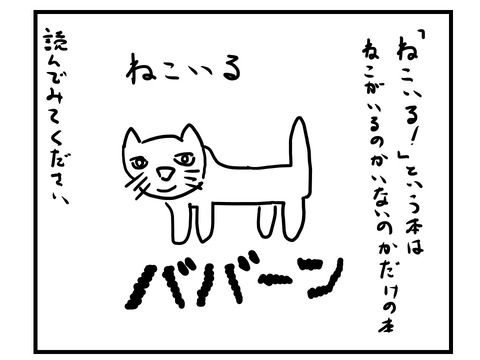 「ねこいる！」という本は
ねこがいるのかいないのかだけの本
ねこいる
ババーン
読んでみてください